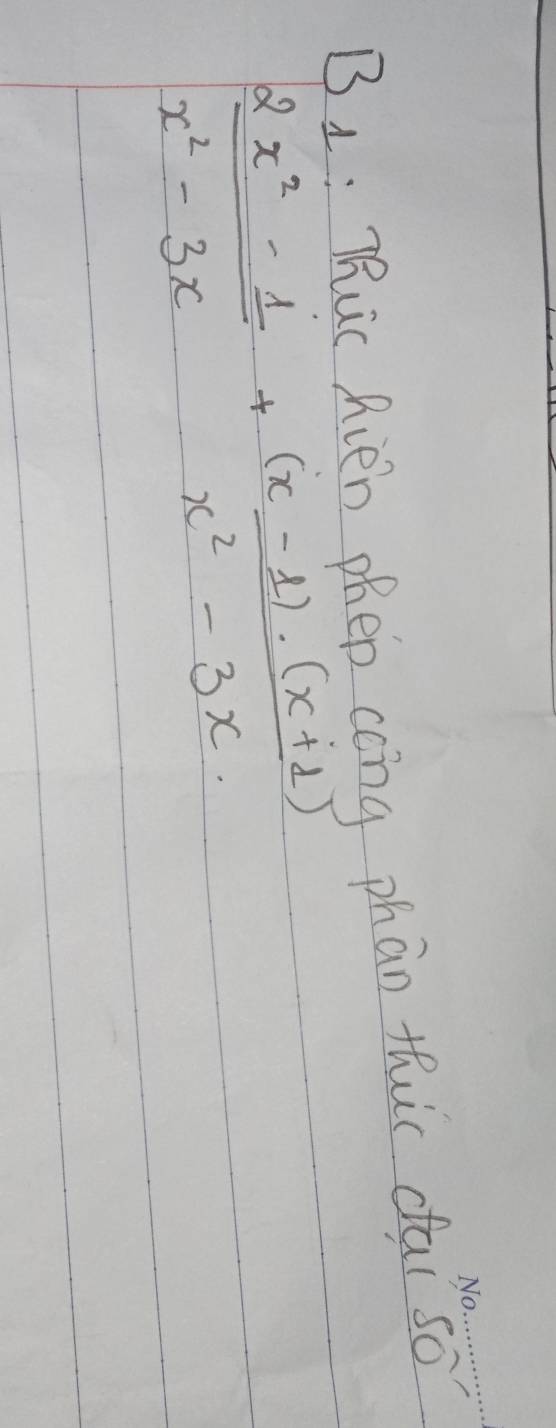 No..........
B1: Thực hiện phép cộng phân thức đại số
2x² - 1 + (x - 1).(x + 1)
x² - 3x x² - 3x.